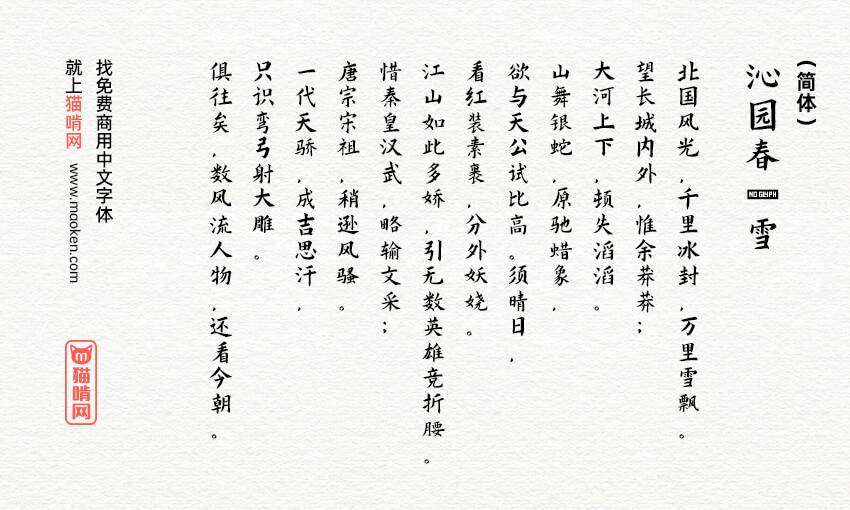 （简体）
沁园春 NO GLYPH 雪
北国风光，千里冰封，万里雪飘。
望长城内外，惟余莽莽；
大河上下，顿失滔滔。
山舞银蛇，原驰蜡象，
欲与天公试比高。须晴日，
看红装素裹，分外妖娆。
江山如此多娇，引无数英雄竞折腰。
惜秦皇汉武，略输文采；
唐宗宋祖，稍逊风骚。
一代天骄，成吉思汗，
只识弯弓射大雕。
俱往矣，数风流人物，还看今朝。
找免费商用中文字体
就上猫啃网 www.maoken.com
猫啃网